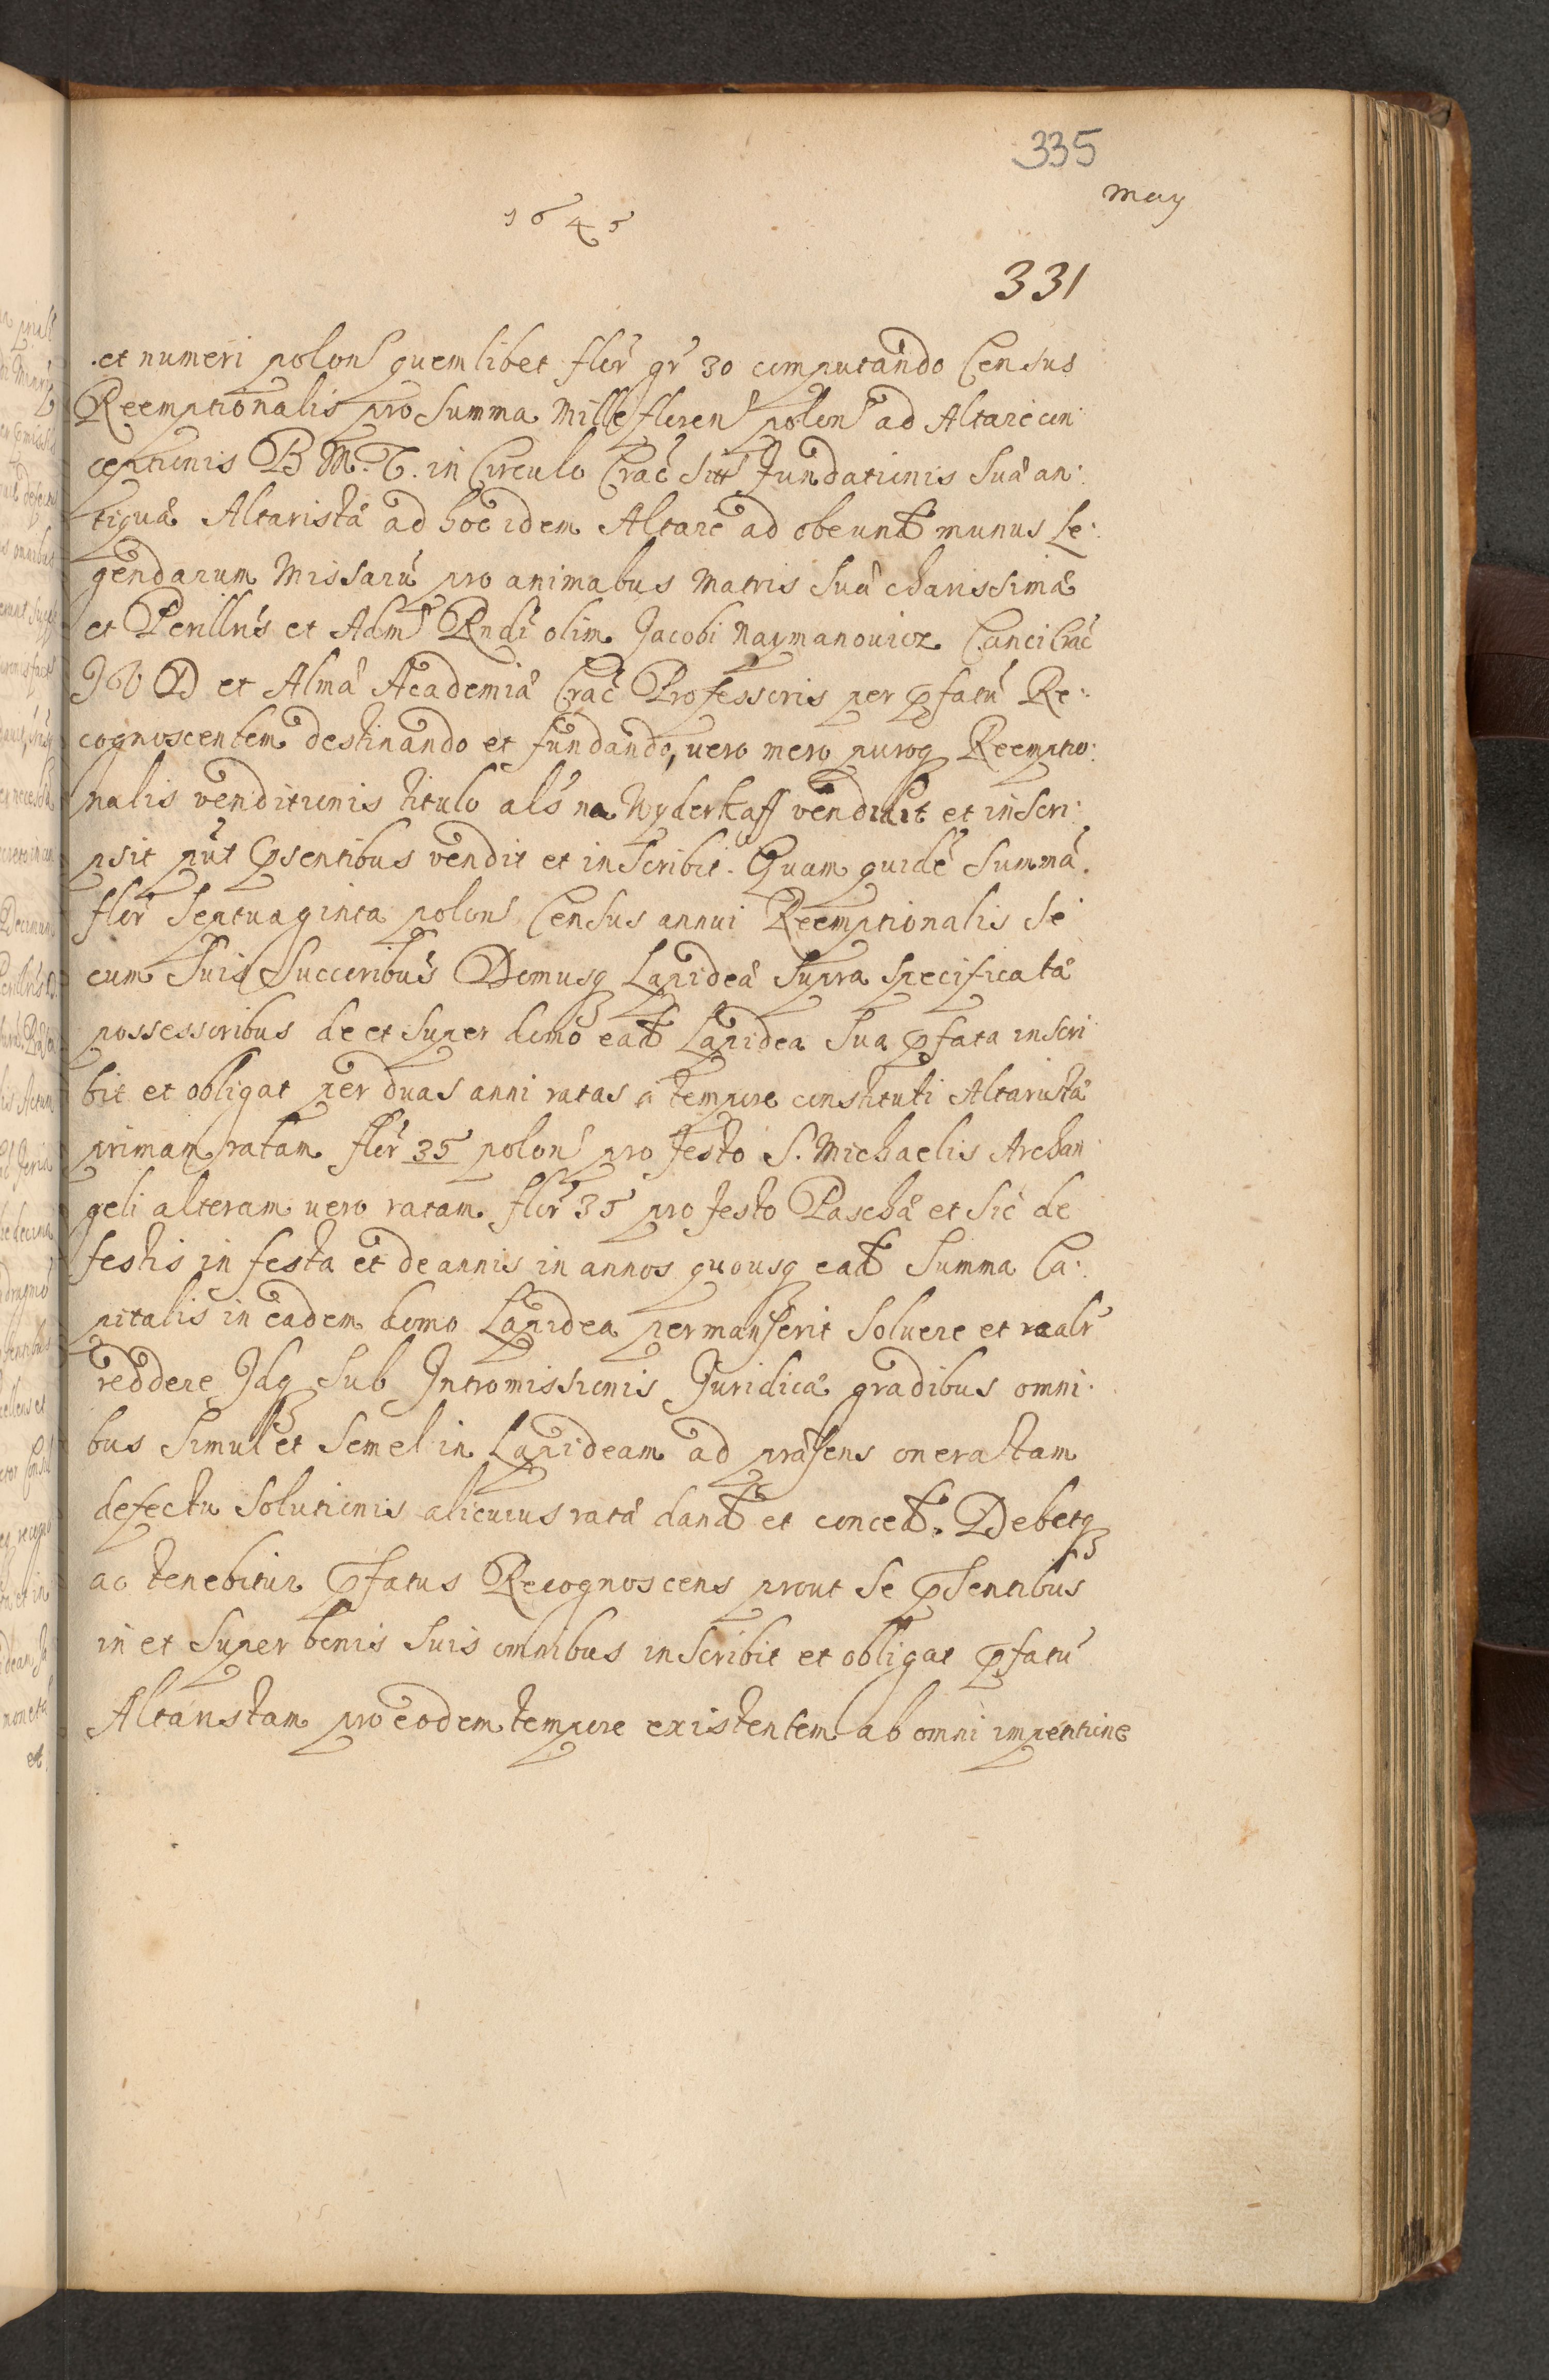 335
May
1645
331
et numeri polon quemlibet flor gr 30 computando Census
Reemptionalis pro Summa Mille floren polon ad Altare con:
ceptionis B M. V. in Circulo Crac sitt Fundationis Suæ an:
tiquæ Altaristæ ad hoc idem Altare ad obeund munus Le:
gendarum Missarũ pro animabus Matris Suæ charissimæ
et Perillris et Adm Rndi olim Jacobi Naymanowicz Canci Crac
J V D et Almæ Academiæ Crac Professoris per pfatũ Re:
cognoscentem destinando et fundando, vero mero puroq Reemptio:
nalis venditionis titulo als na Wyderkaff vendidit et inscri:
psit put psentibus vendit et inscribit. Quam quidẽ Summã
flor Septuaginta polon Census annui Reemptionalis Se
cum Suis Succoribus Domusq Lapideæ Supra specificatæ
possessoribus de et Super domo ead Lapidea Sua pfata inscri
bit et obligat per duas anni ratas a tempore constituti Altaristæ
primam ratam flor 35 polon pro festo S. Michaelis Archan
geli alteram vero ratam flor 35 pro festo Paschæ et Sic de
festis in festa et de annis in annos quousq ead Summa Ca:
pitalis in eadem domo Lapidea permanserit Solvere et realr
reddere Idq Sub Intromissionis Juridicæ gradibus omni:
bus Simul et Semel in Lapideam ad præsens onerastam
defectu Solutionis alicuius ratæ dand et conced. Debetq
ac tenebitur pfatus Recognoscens prout Se psentibus
in et Super bonis Suis omnibus inscribit et obligat pfatũ
Altaristam pro eodem tempore existentem ab omni impentione